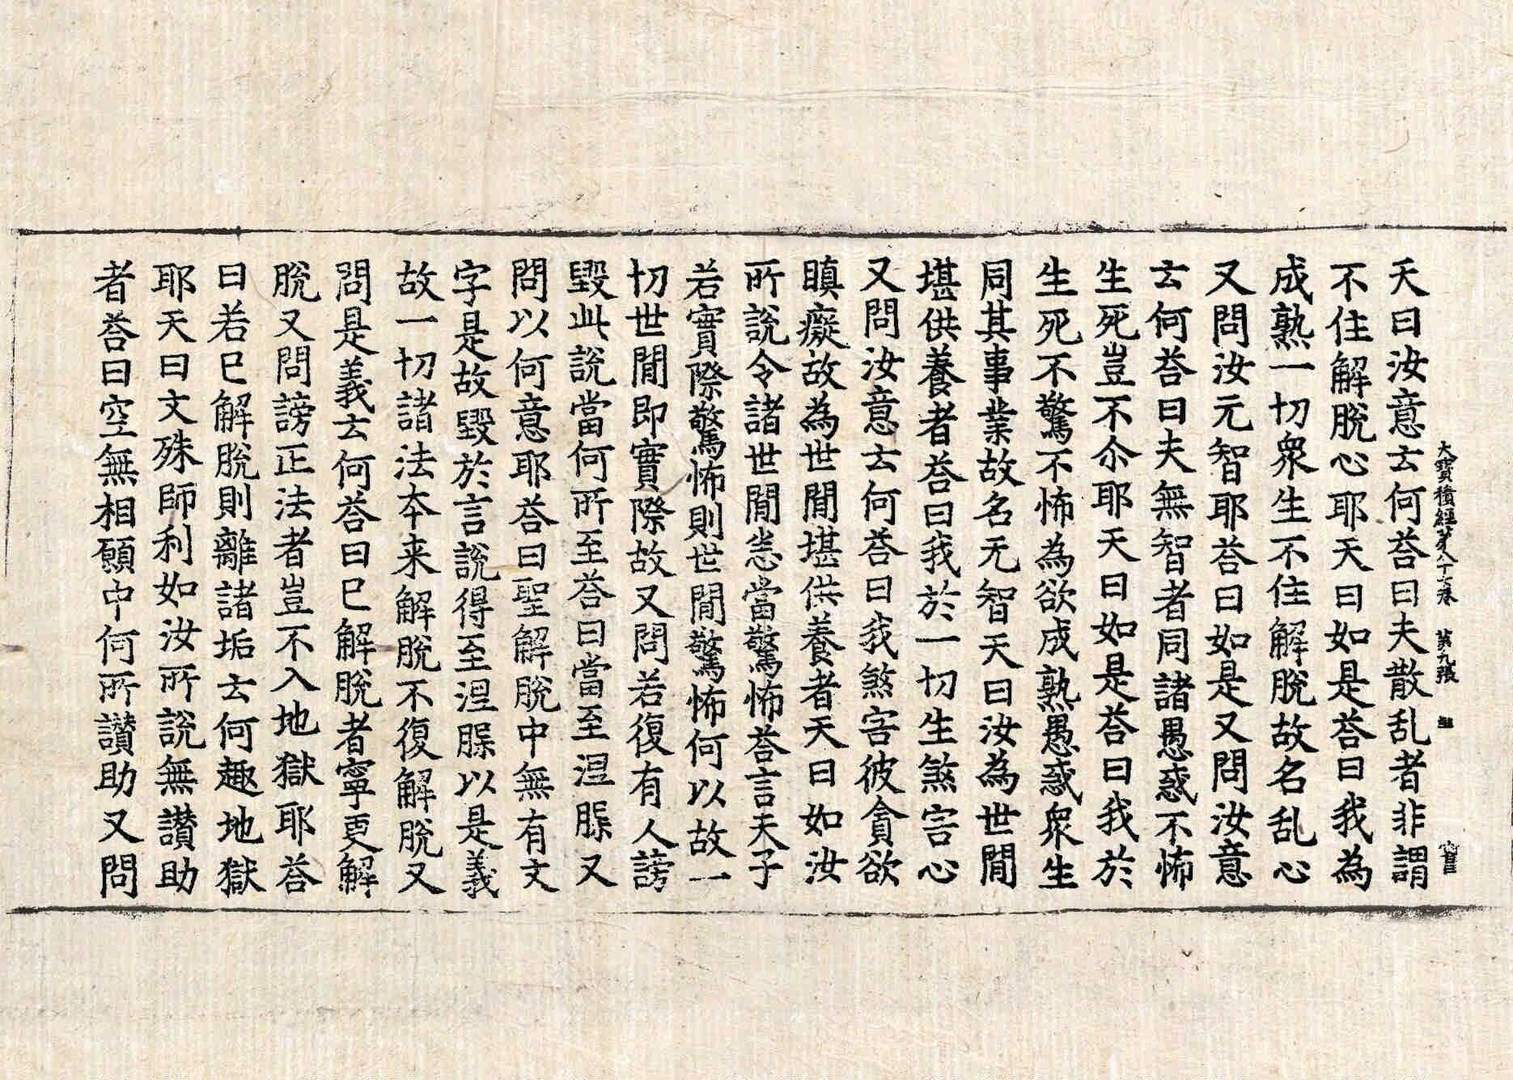 大寶積經第八十七卷 第九張
天曰汝意云何荅曰夫散乱者非謂
不住解脫心耶天曰如是荅曰我為
成熟一切衆生不住解脫故名乱心
又問汝无智耶荅曰如是又問汝意
云何荅曰夫無智者同諸愚惑不怖
生死豈不尒耶天曰如是荅曰我於
生死不驚不怖為欲成熟愚惑衆生
同其事業故名无智天曰汝為世閒
堪供養者荅曰我於一切生煞害心
又問汝意云何荅曰我煞害彼貪欲
瞋癡故為世閒堪供養者天曰如汝
所說令諸世閒悉當驚怖荅言天子
若實際驚怖則世閒驚怖何以故一
切世閒即實際故又問若復有人謗
毀此說當何所至荅曰當至涅槃又
問以何意耶荅曰聖解脫中無有文
字是故毀於言說得至涅槃以是義
故一切諸法本来解脫不復解脫又
問是義云何荅曰已解脫者寧更解
脫又問謗正法者豈不入地獄耶荅
曰若已解脫則離諸垢云何趣地獄
耶天曰文殊師利如汝所說無讃助
者荅曰空無相願中何所讃助又問